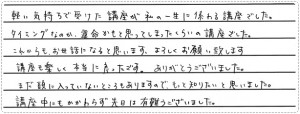 軽い気持ちで受けた講座が私の一生に係わる講座でした。
タイミングなのか、運命かもと思ってしまったくらいの講座でした。
これからもお世話になると思います。よろしくお願い致します
講座も楽しく本当に良かったです。ありがとうございました。
まだ頭に入っていないところもありますので、もっと知りたいと思いました。
講座中にもかかわらず先日は有難うございました。